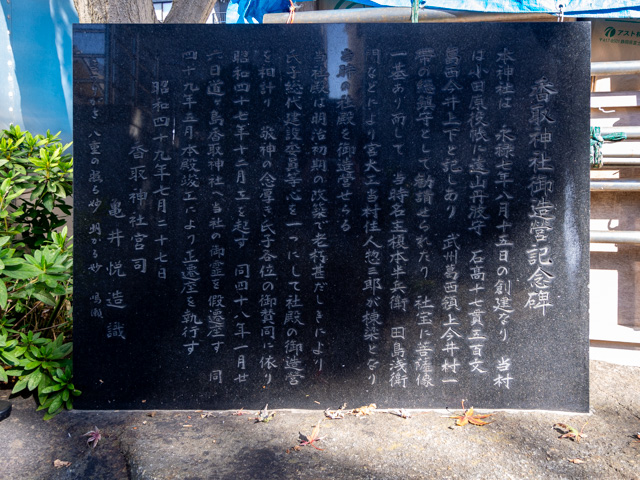 香取神社御造営記念碑
本神社は 永禄八年八月十五日の創建なり 当村
は小田原役帳に遠山丹波守 石高十七貫五百文
葛西今井上下と記しあり 武州葛西領上今井村一
帯の総鎮守として勧請せられたり 社宝に菩薩像
一基あり而して 当時名主榎本半兵衛 田島浅衛
門などにより宮大工当村住人惣三郎が棟梁となり
社殿を御造営せらる
当社殿は明治初期の改築で老朽甚だしきにより
氏子総代建設委員等心を一つにして社殿の御造営
を相計り 敬神の念厚き氏子各位の御賛同に依り
昭和四十七年十二月工を起す 同四十八年一月廿
六日道々島香取神社へ当社の御霊を假遷座す 同
四十九年五月本殿竣工により正遷座を執行す
昭和四十九年七月二十七日
香取神社宮司
亀井悦造識
八重の
明かる妙 鳴瀬
アスト